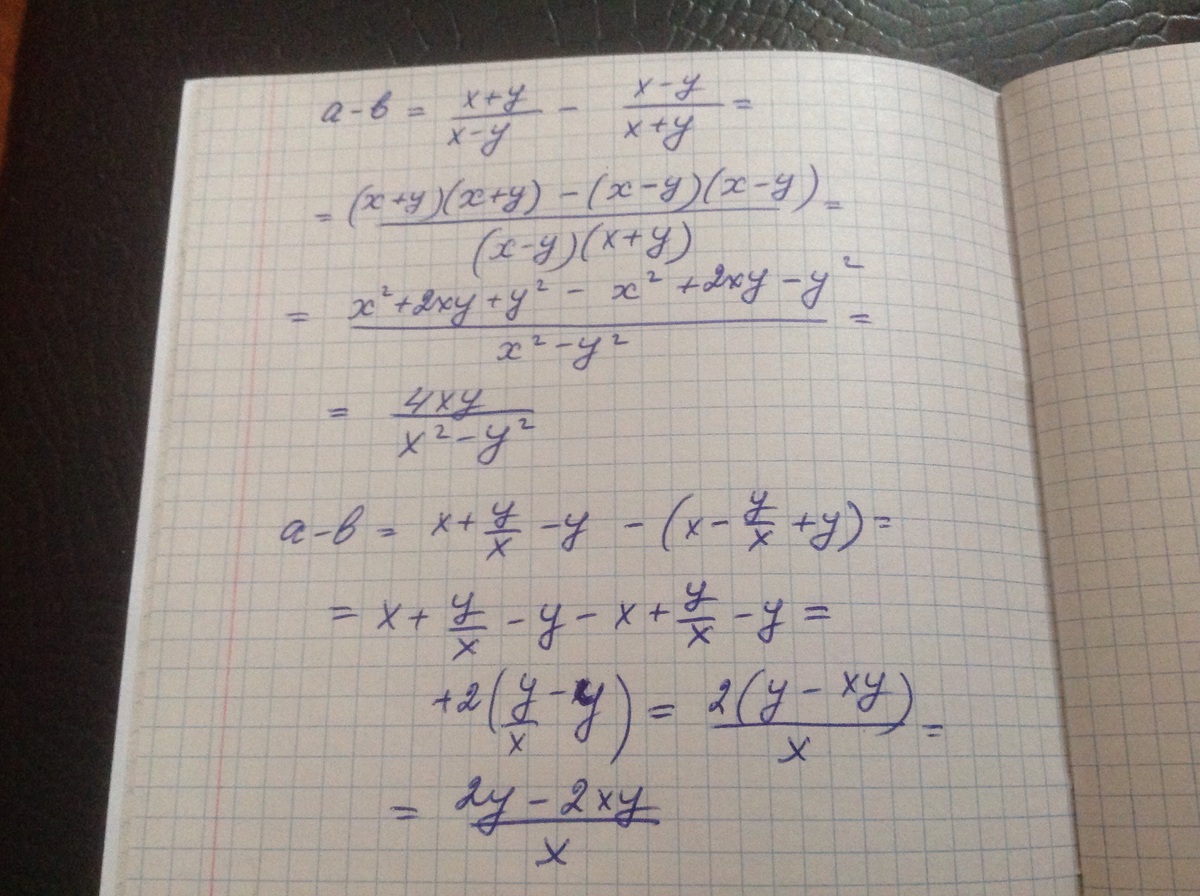 a-в = \frac{x+y}{x-y} - \frac{x-y}{x+y} =
= \frac{(x+y)(x+y) - (x-y)(x-y)}{(x-y)(x+y)} =
= \frac{x²+2xy+y² - x²+2xy-y²}{x²-y²} =
= \frac{4xy}{x²-y²}
a-в = x+\frac{y}{x} -y - (x-\frac{y}{x}+y) =
= x+\frac{y}{x} -y-x+\frac{y}{x} -y =
+2(\frac{y}{x}-y) = \frac{2(y-xy)}{x} =
= \frac{2y-2xy}{x}